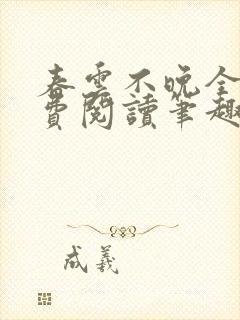 春雲不晚全
費閱讀筆趣
成義